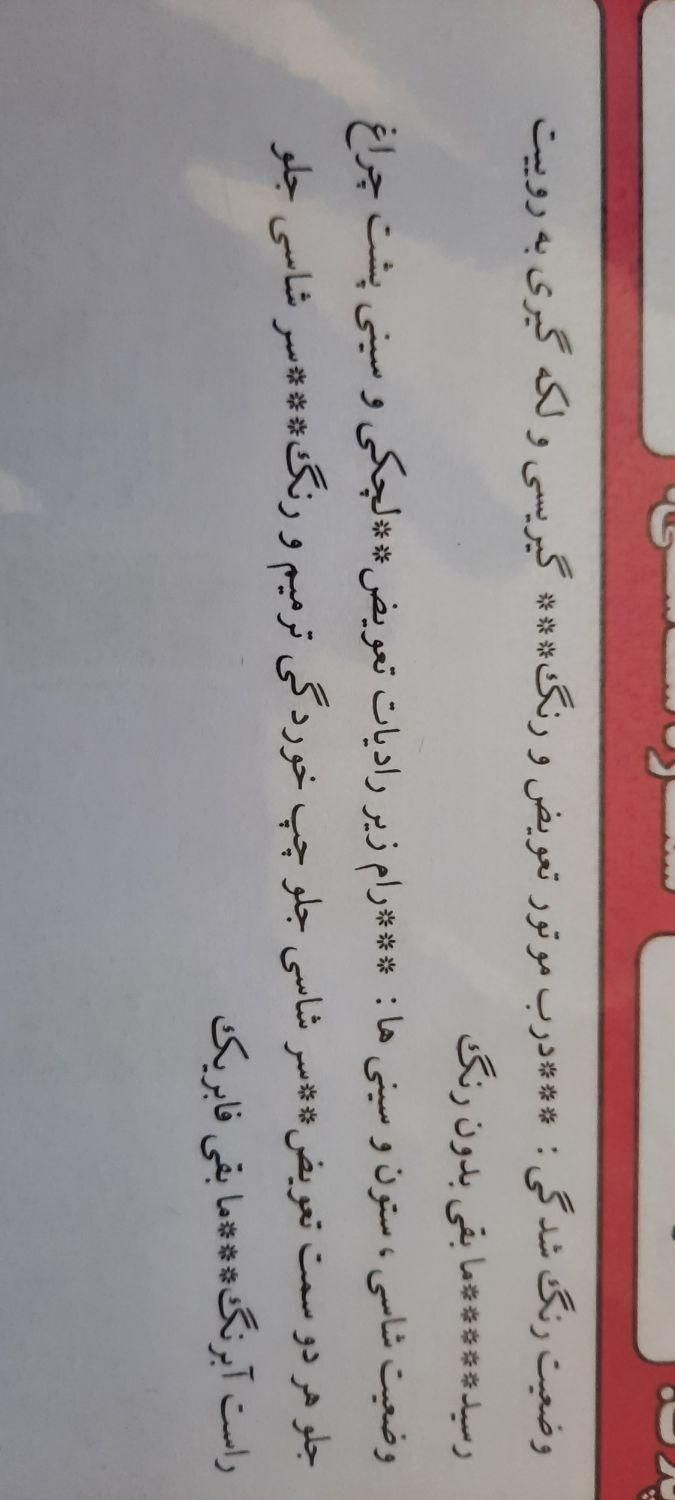 وضعیت رنگ شدگی : ***درب موتور تعویض و رنگ*** گیریسی و لکه گیری به روییت
رسید*****مابقی بدون رنگ
وضعیت شاسی ، ستون و سینی ها: ***رام زیر رادیات تعویض**لچکی و سینی پشت چراغ
جلو هر دو سمت تعویض**سر شاسی جلو چپ خوردگی ترمیم و رنگ***سر شاسی جلو
راست آبرنگ***مابقی فابریک